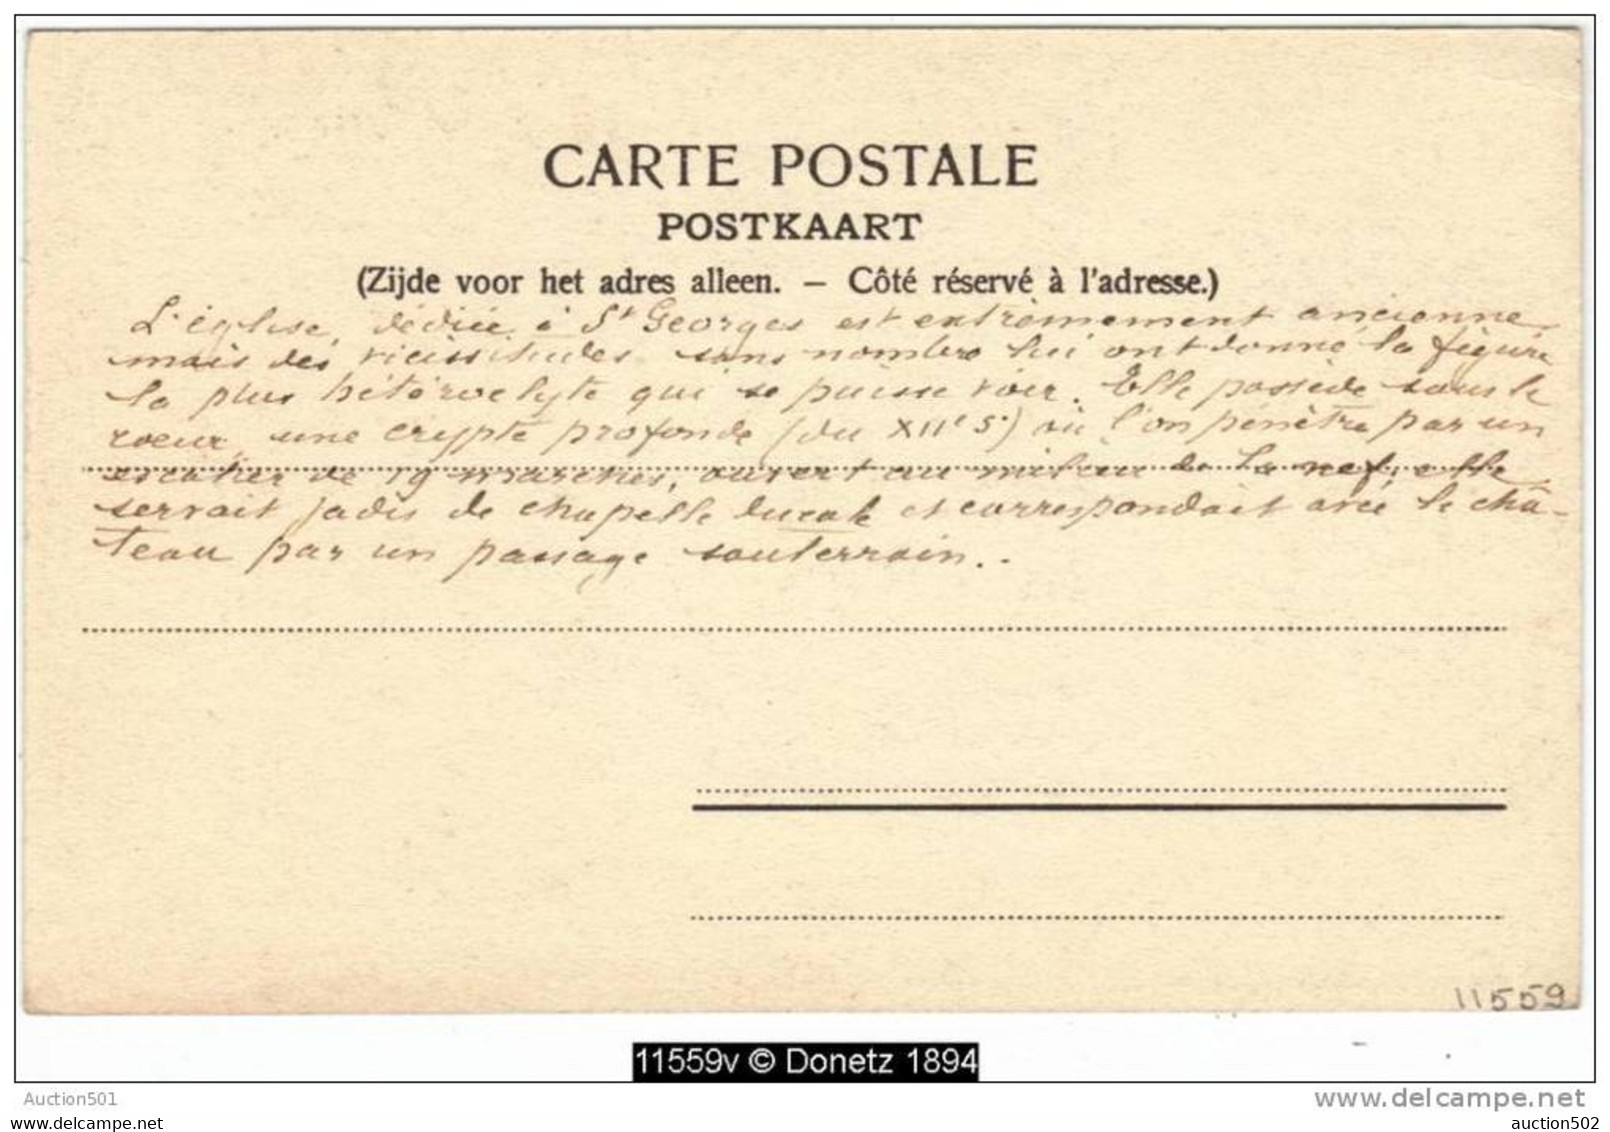 CARTE POSTALE
POSTKAART
(Zijde voor het adres alleen. — Côté réservé à l'adresse.)
L'église, dédiée à St Georges est extrêmement ancienne,
mais des vicissitudes sans nombre lui ont donné la figure
la plus hétéroclyte qui se puisse voir. Elle possède sous le
cœur une crypte profonde (du XIIe S.) où l'on pénètre par un
escalier de 19 marches, ouvert au milieu de la nef; elle
servait jadis de chapelle ducale et correspondait avec le châ-
teau par un passage souterrain..
11559
11559v © Donetz 1894
Auction501
www.delcampe.net
www.delcampe.net
auction502